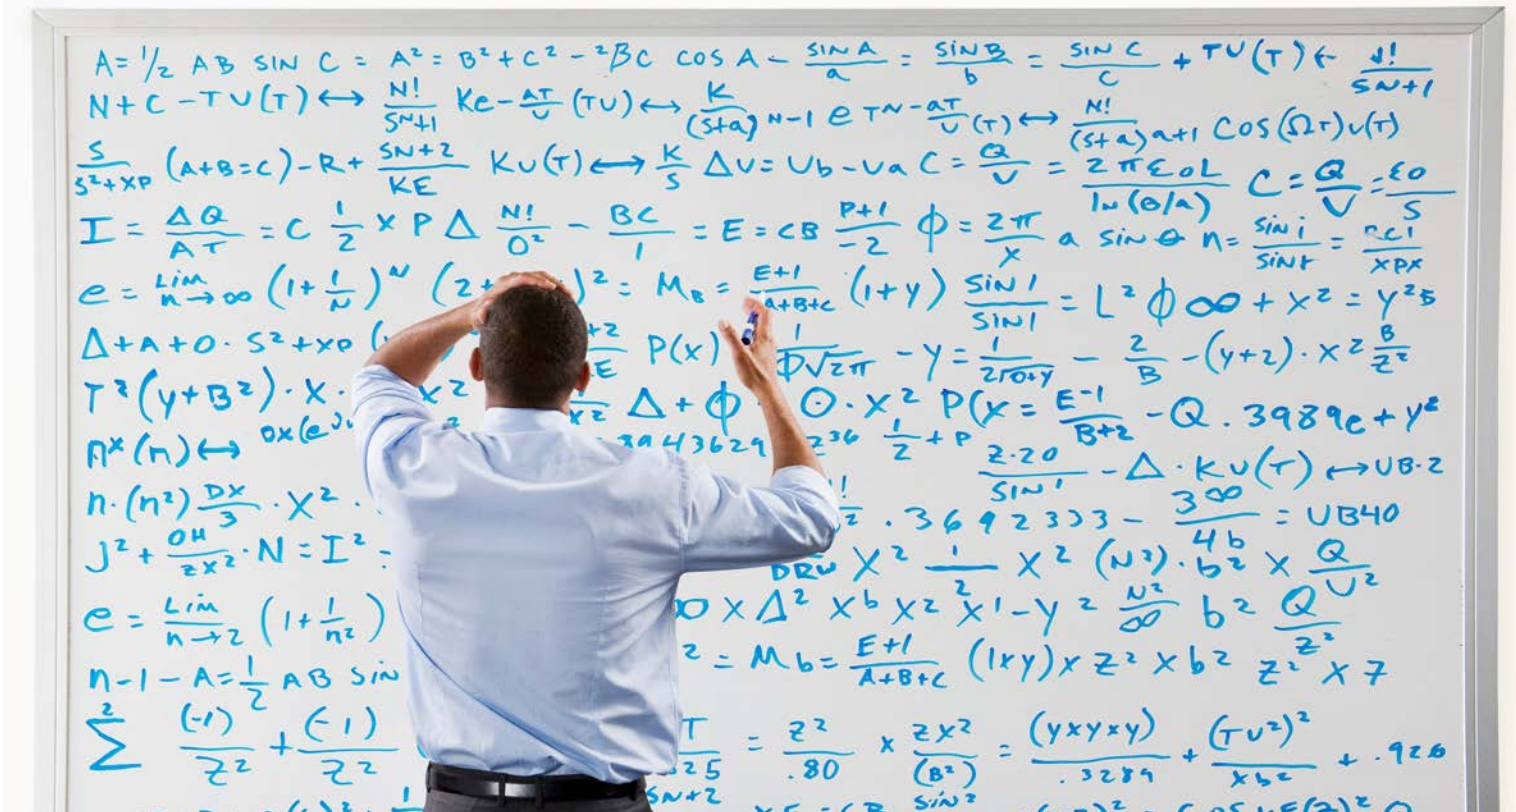 A = 1/2 AB SIN C = A² = B² + C² - ²BC COS A - SINA/a = SINB/b = SIN C/C + TU(T) ← N!/SN+1
N + C - TU(T) ↔ N!/Sᴺ+1 Ke - AT/U (TU) ↔ K/(S+a) N-1 e TN - aT/U (T) ↔ N!/(S+a)a+1 COS(ΩT)U(T)
S/S²+XP (A+B=C) - R + SN+2/KE KU(T) ↔ K/S ΔU = Ub - Ua C = Q/U = 2πε0L/IN(B/A) C = Q/V = ε0/S
I = ΔQ/AT = C 1/2 × P Δ N!/O² - BC/1 = E = CB P+1/-2 Φ = 2π/X a SIN θ n = SINi/SINr =
e = Lim n→∞ (1 + 1/N)ᴺ (2+ )² = M_B = E+1/A+B+C (1+Y) SIN1/SIN1 = L² Φ ∞ + X² = Y²
Δ + A + O · S² + XP P(X) 1/D√2π - Y = - 2/B - (Y+2) · X² B/Z²
T²(Y+B²) · X · X² Δ + Φ O · X² P(X = E-1/B+2 - Q .3989e + Y²
nˣ(n) ↔ 43629 Z36 1/2 + P Z·20/SIN1 - Δ · KU(T) ↔ UB·2
n · (n²) DX/3 · X² · .3692333 - 3∞/4b = UB40
J² + OH/ZX² · N = I² = DRW X² 1/2 X² (N²) · b² × Q/U²
e = Lim n→2 (1 + 1/n²) × Δ² Xᵇ X² X¹ - Y² N²/∞ b² Q/Z²
n - 1 - A = 1/2 AB SIN ² = Mb = E+1/A+B+C (1XY) × Z² × b² Z² × 7
² Σ (-1)/Z² + (-1)/Z² T/ 25 = Z²/.80 × ZX²/(B²) = (YXYXY)/.3289 + (TU²)²/Xb² + .926
SN+2 SIN²